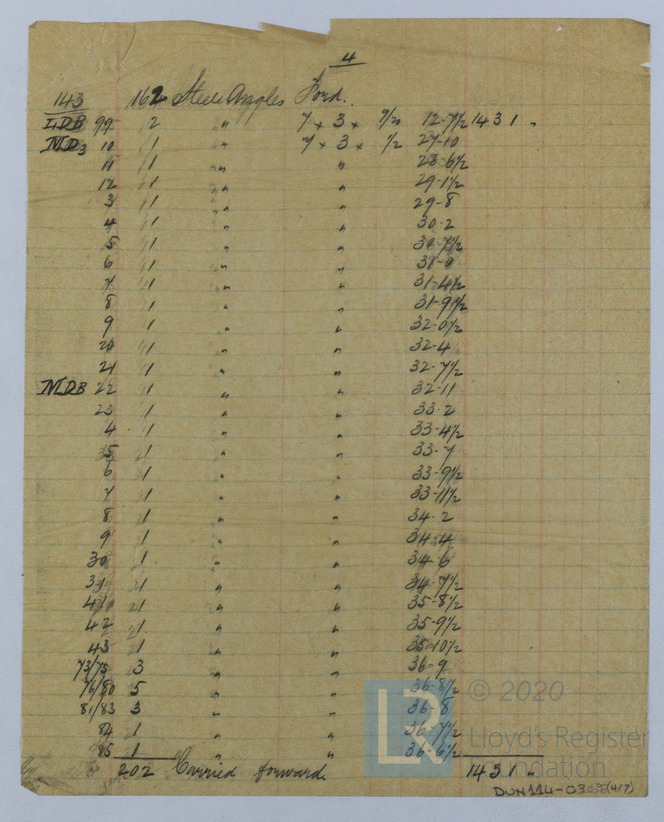 4
143 162 Steel Angles Ford.
LDB 99 2 " 7 x 3 x 9/20 12-7½ 1431 "
MD3 10 1 " 7 x 3 x ½ 27-10
11 1 " " 28-6½
12 1 " " 29-1½
3 1 " " 29-8
4 1 " " 30-2
5 1 " " 30-7½
6 1 " " 31-0
7 1 " " 31-4½
8 1 " " 31-9½
9 1 " " 32-0½
20 1 " " 32-4
21 1 " " 32-7½
MDB 22 1 " " 32-11
23 1 " " 33-2
4 1 " " 33-4½
35 1 " " 33-7
6 1 " " 33-9½
7 1 " " 33-11½
8 1 " " 34-2
9 1 " " 34-4
30 1 " " 34-6
31 1 " " 34-7½
41 1 " " 35-8½
42 1 " " 35-9½
43 1 " " 35-10½
73/75 3 " " 36-9
76/80 5 " " 36-8½
81/83 3 " " 36-8
84 1 " " 36-7½
85 1 " " 36-6½
202 Carried forward. 1431 "
DUN114-0309(4/7)
LR
© 2020
Lloyd's Register
Foundation